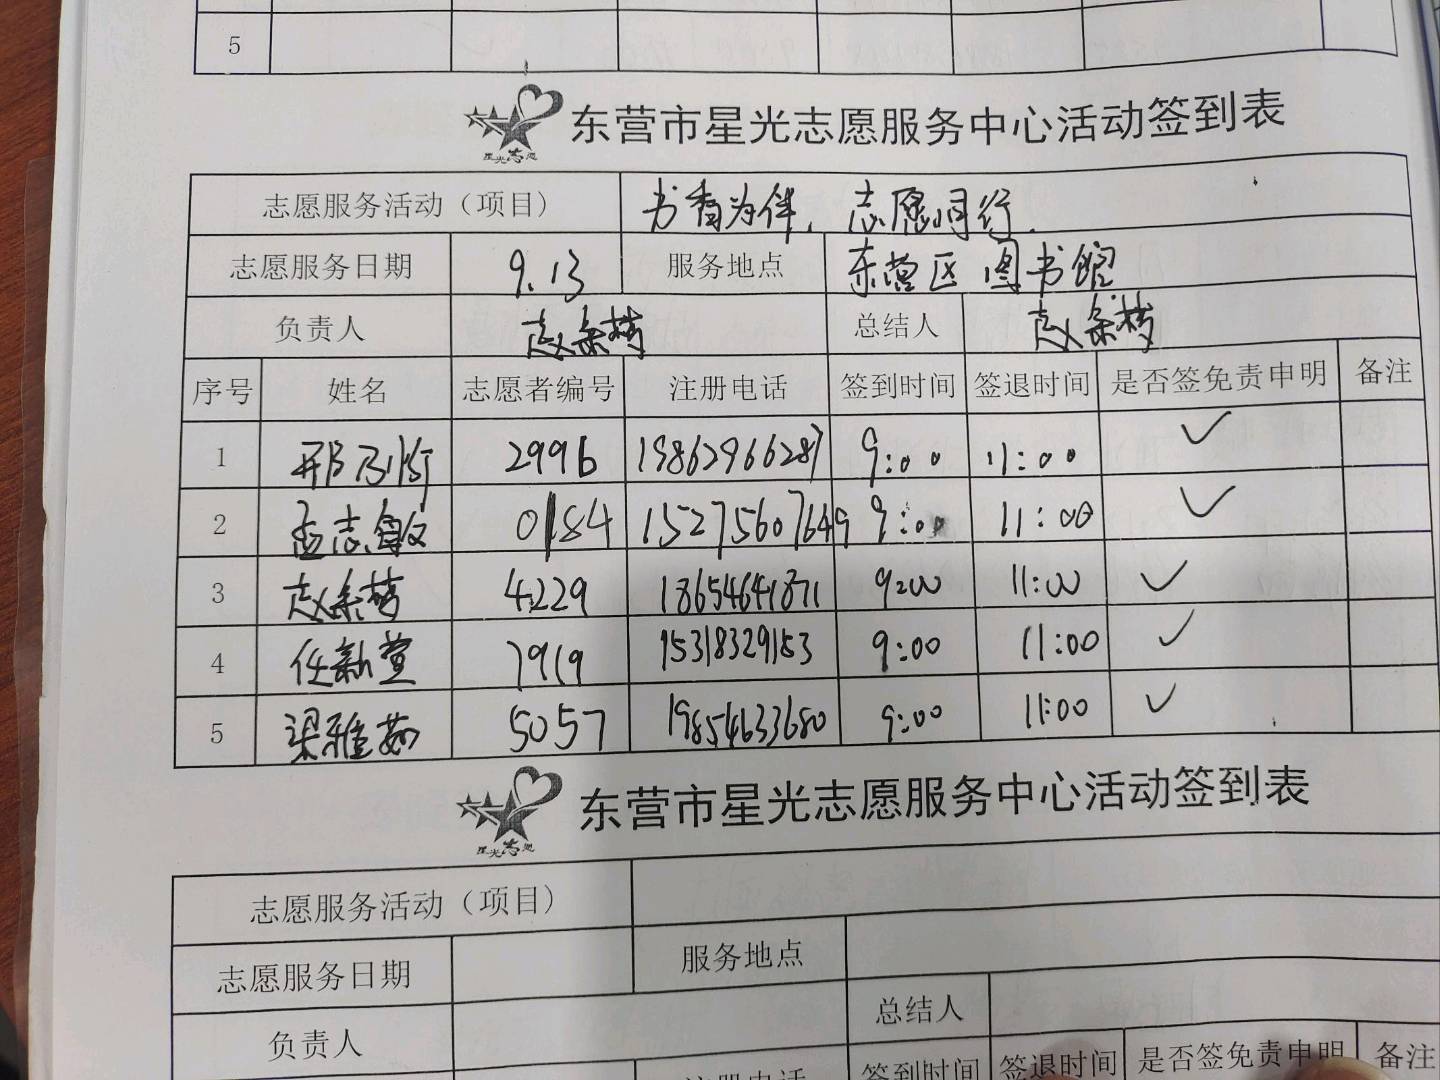 5
星光志愿
东营市星光志愿服务中心活动签到表
志愿服务活动（项目） 书香为伴，志愿同行.
志愿服务日期 9.13 服务地点 东营区图书馆
负责人 总结人
序号 姓名 志愿者编号 注册电话 签到时间 签退时间 是否签免责申明 备注
1 2996 19862966287 9:00 11:00 ✓
2 孟志敏 0184 15275607649 9:00 11:00 ✓
3 4229 18654641871 9:00 11:00 ✓
4 任新萱 7919 15318329153 9:00 11:00 ✓
5 梁雅茹 5057 19854633680 9:00 11:00 ✓
星光志愿
东营市星光志愿服务中心活动签到表
志愿服务活动（项目）
志愿服务日期 服务地点
负责人 总结人
注册电话 签到时间 签退时间 是否签免责申明 备注